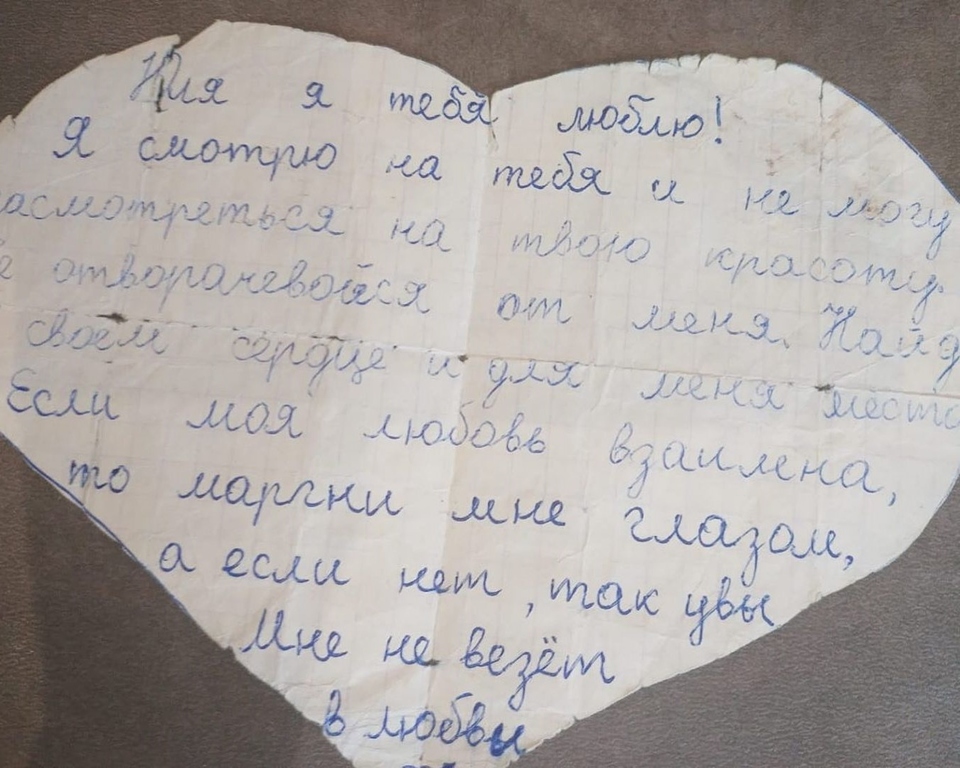 Ния я тебя люблю!
Я смотрю на тебя и не могу
асмотреться на твою красоту.
е отворачевойся от меня. Найд
своем сердце и для меня место
Если моя любовь взаимена,
то маргни мне глазом,
а если нет, так увы
Мне не везёт
в любвы